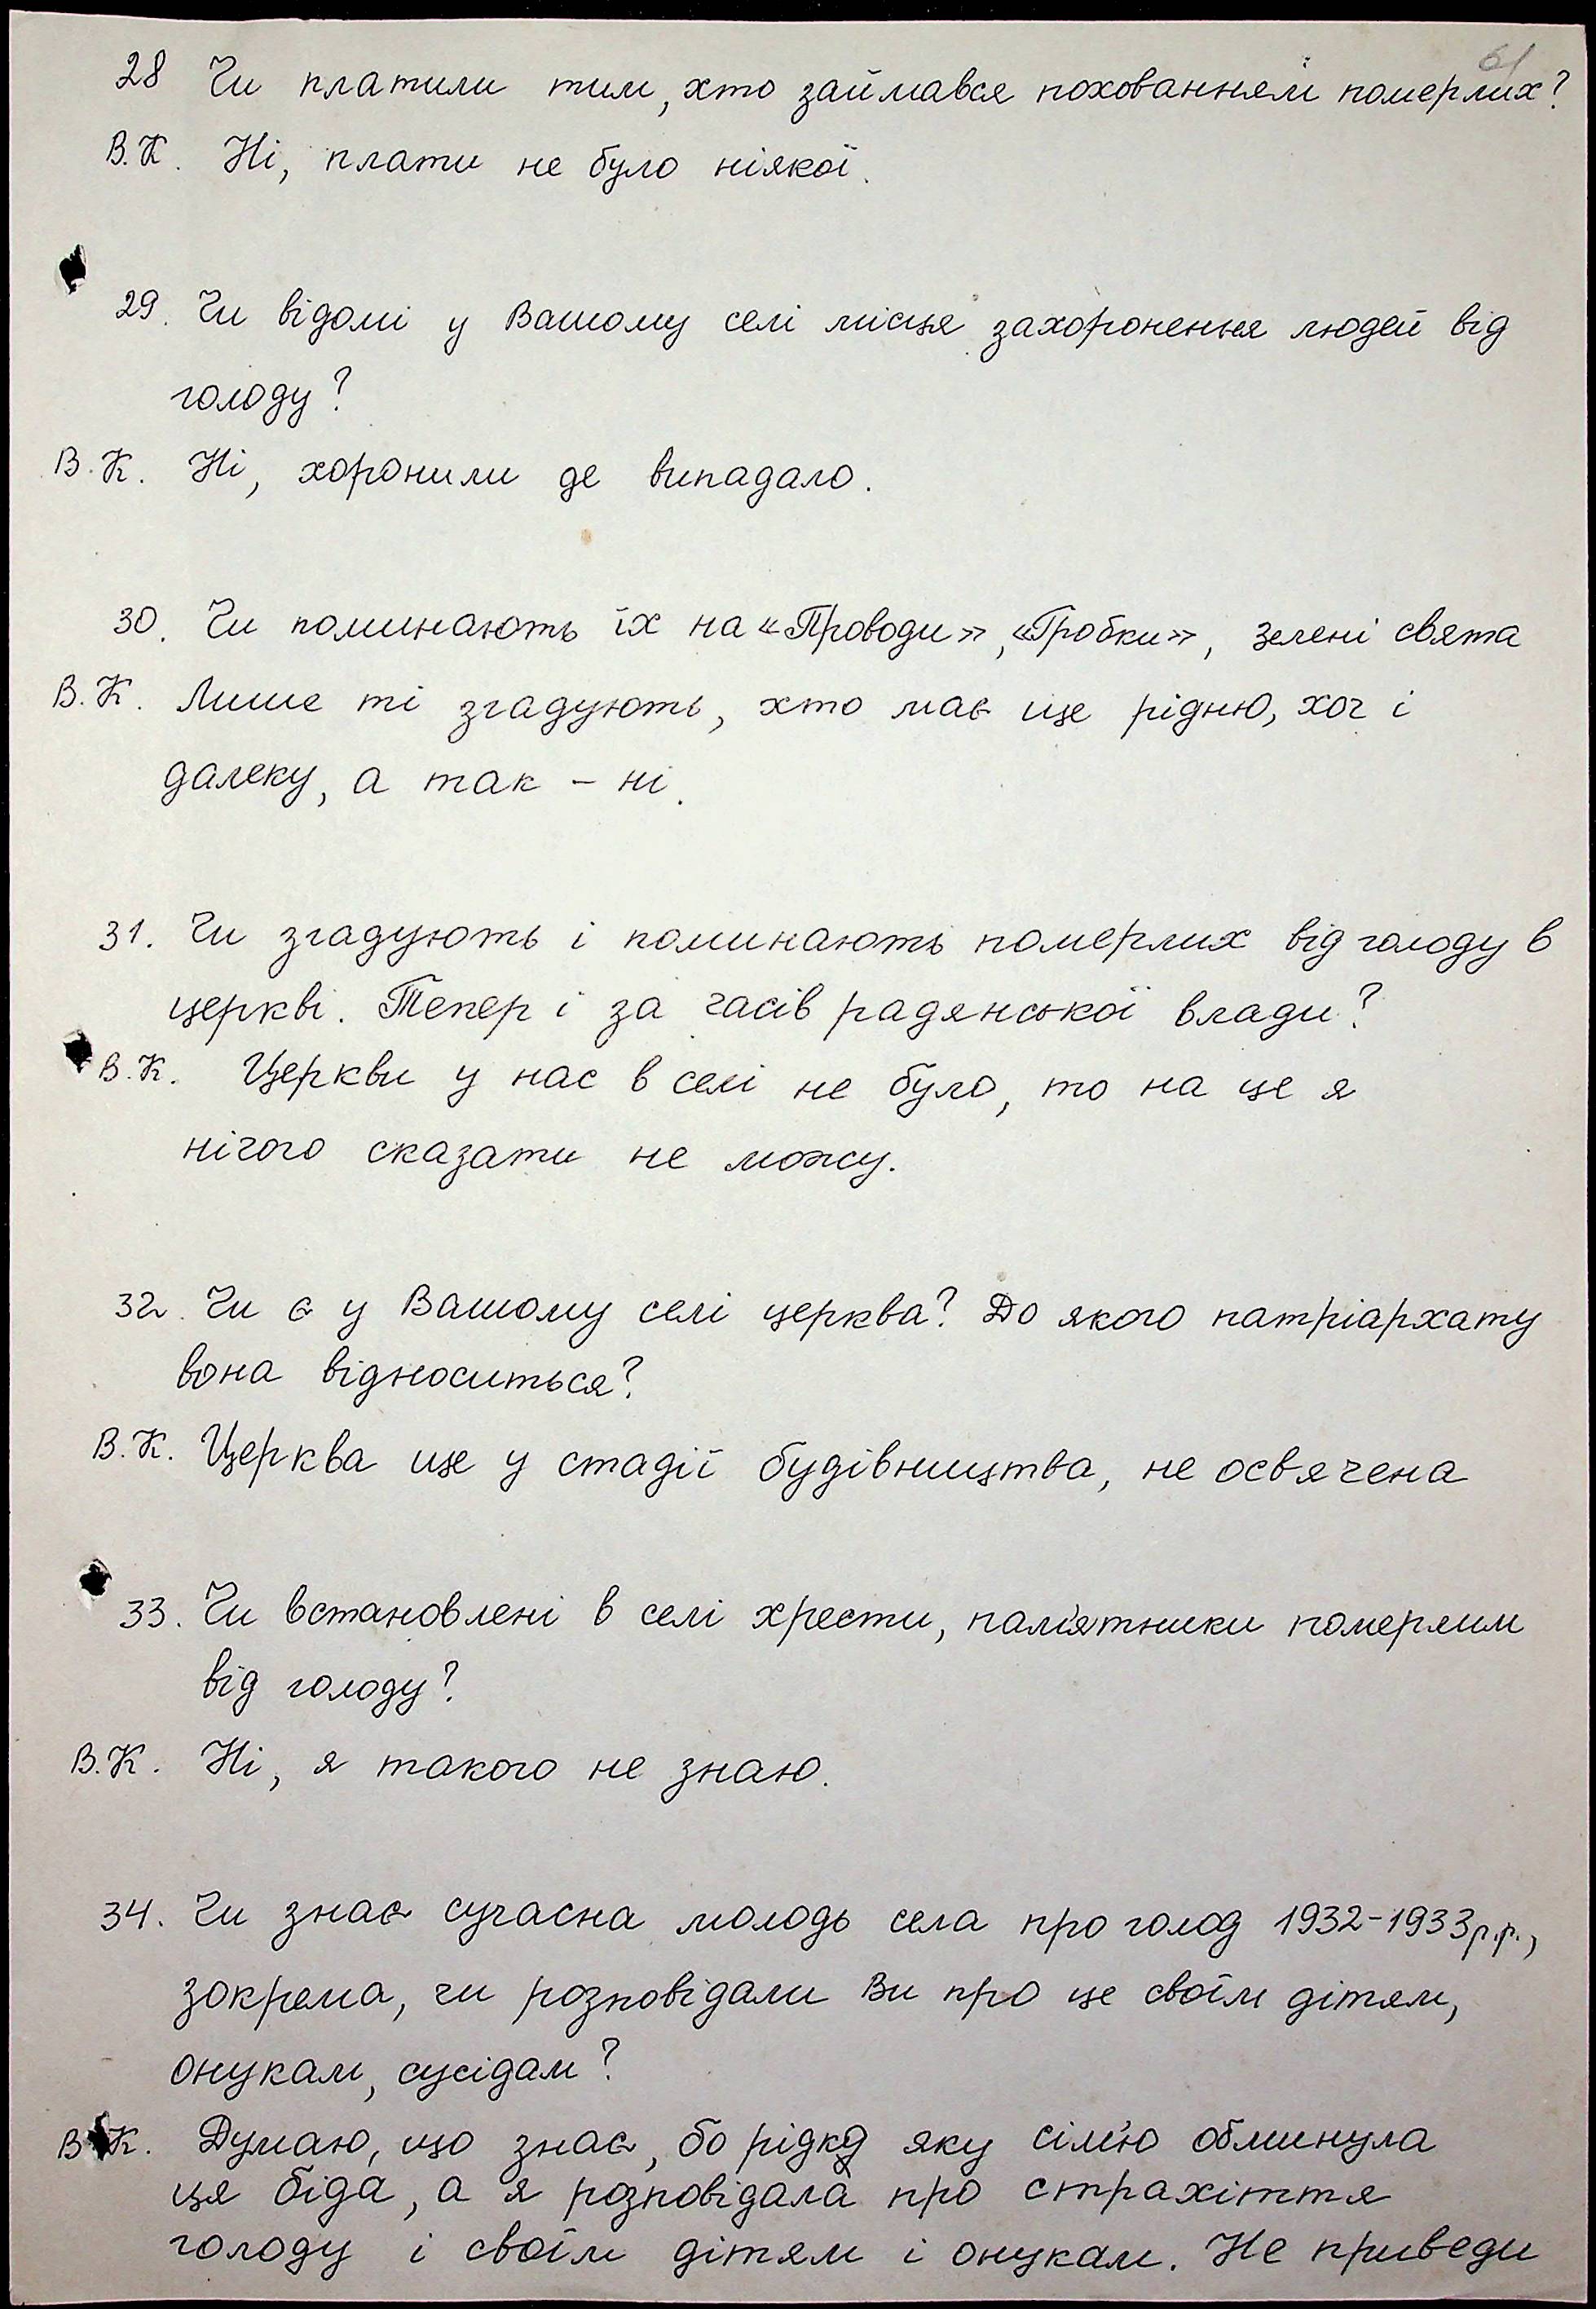 61
28 Чи платили тим, хто займався похованням померлих?
В.К. Ні, плати не було ніякої.
29. Чи відомі у Вашому селі місця захоронення людей від
голоду?
В.К. Ні, хоронили де випадало.
30. Чи поминають їх на «Проводи», «Гробки», зелені свята
В.К. Лише ті згадують, хто має ще рідню, хоч і
далеку, а так – ні.
31. Чи згадують і поминають померлих від голоду в
церкві. Тепер і за часів радянської влади?
В.К. Церкви у нас в селі не було, то на це я
нічого сказати не можу.
32. Чи є у Вашому селі церква? До якого патріархату
вона відноситься?
В.К. Церква ще у стадії будівництва, не освячена
33. Чи встановлені в селі хрести, пам'ятники померлим
від голоду?
В.К. Ні, я такого не знаю.
34. Чи знає сучасна молодь села про голод 1932-1933р.р.,
зокрема, чи розповідали Ви про це своїм дітям,
онукам, сусідам?
В.К. Думаю, що знає, бо рідко яку сім'ю обминула
ця біда, а я розповідала про страхіття
голоду і своїм дітям і онукам. Не приведи